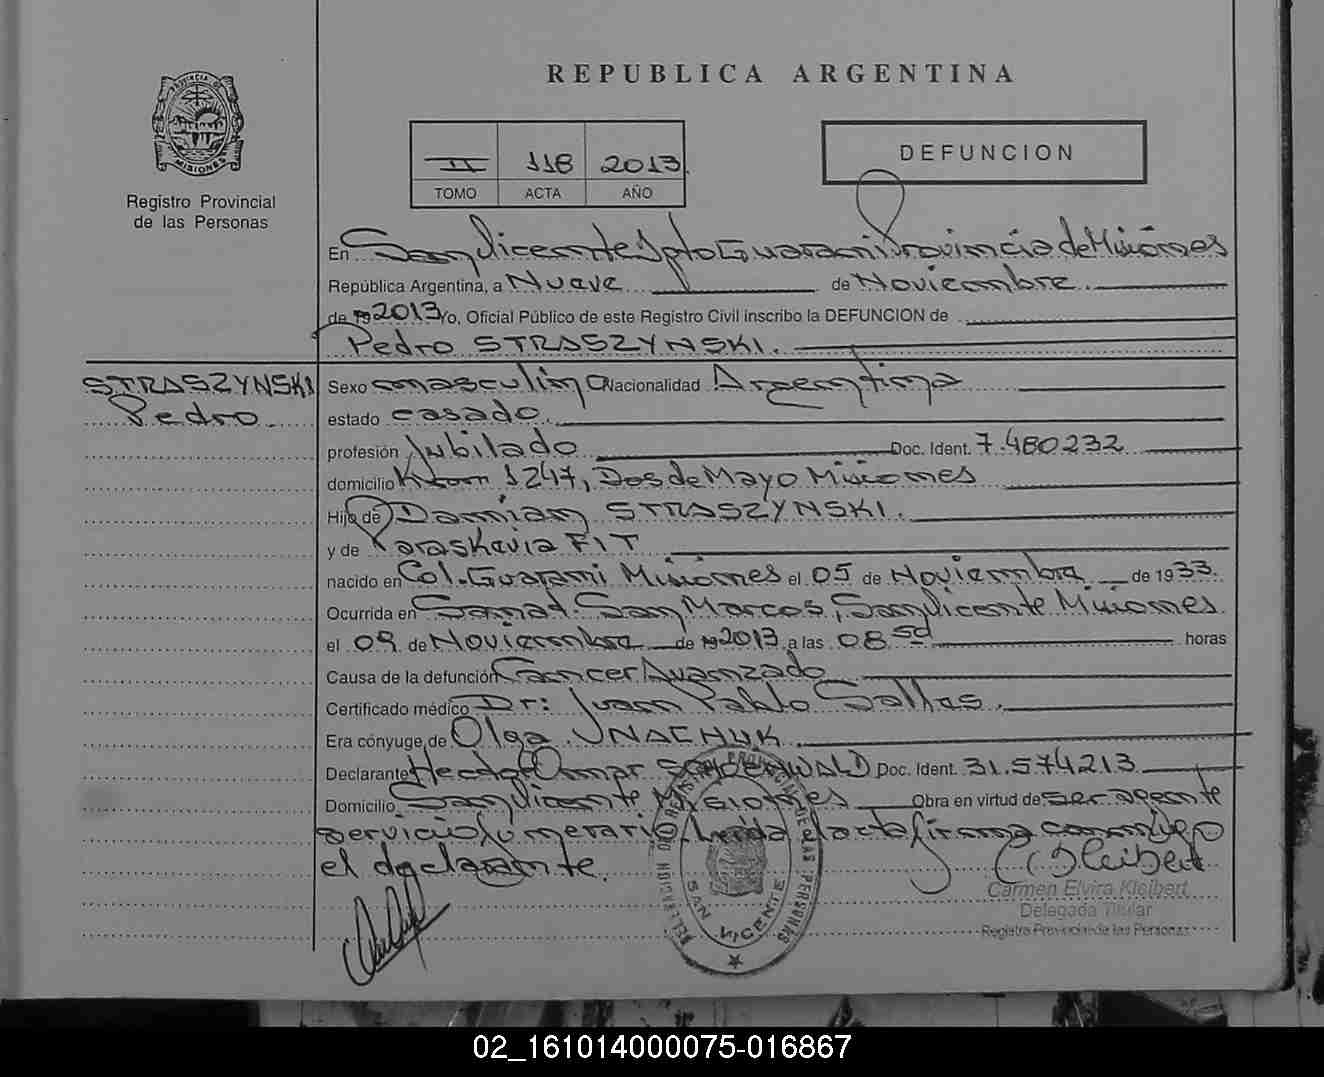 PROVINCIA DE
MISIONES
Registro Provincial
de las Personas
REPUBLICA ARGENTINA
II 118 2013
TOMO ACTA AÑO
DEFUNCION
En San Vicente Dpto Guarani Provincia de Misiones
República Argentina, a Nueve de Noviembre
de 19 2013 Yo, Oficial Público de este Registro Civil inscribo la DEFUNCION de
Pedro STRASZYNSKI.
STRASZYNSKI
Pedro
Sexo masculino Nacionalidad Argentina
estado casado
profesión Jubilado Doc. Ident. 7.480232
domicilio Km 1247, Dos de Mayo Misiones
Hijo de Damian STRASZYNSKI.
y de Paraskevia FIT
nacido en Col. Guarani Misiones el 05 de Noviembre de 1933.
Ocurrida en Sanat. San Marcos, San Vicente Misiones
el 09 de Noviembre de 19 2013 a las 08 50 horas
Causa de la defunción Cancer Avanzado
Certificado médico Dr: Juan Pablo Sallas.
Era cónyuge de Olga UNACHUK.
Declarante Omar Doc. Ident. 31.574213
Domicilio San Vicente Misiones Obra en virtud de ser agente
servicio funerario Leida el acta firma conmigo
el declarante.
DELEGACION DEL REGISTRO PROVINCIAL DE LAS PERSONAS
SAN VICENTE
Carmen Elvira Kleibert
Delegada Titular
Registro Provincial de las Personas
02_161014000075-016867